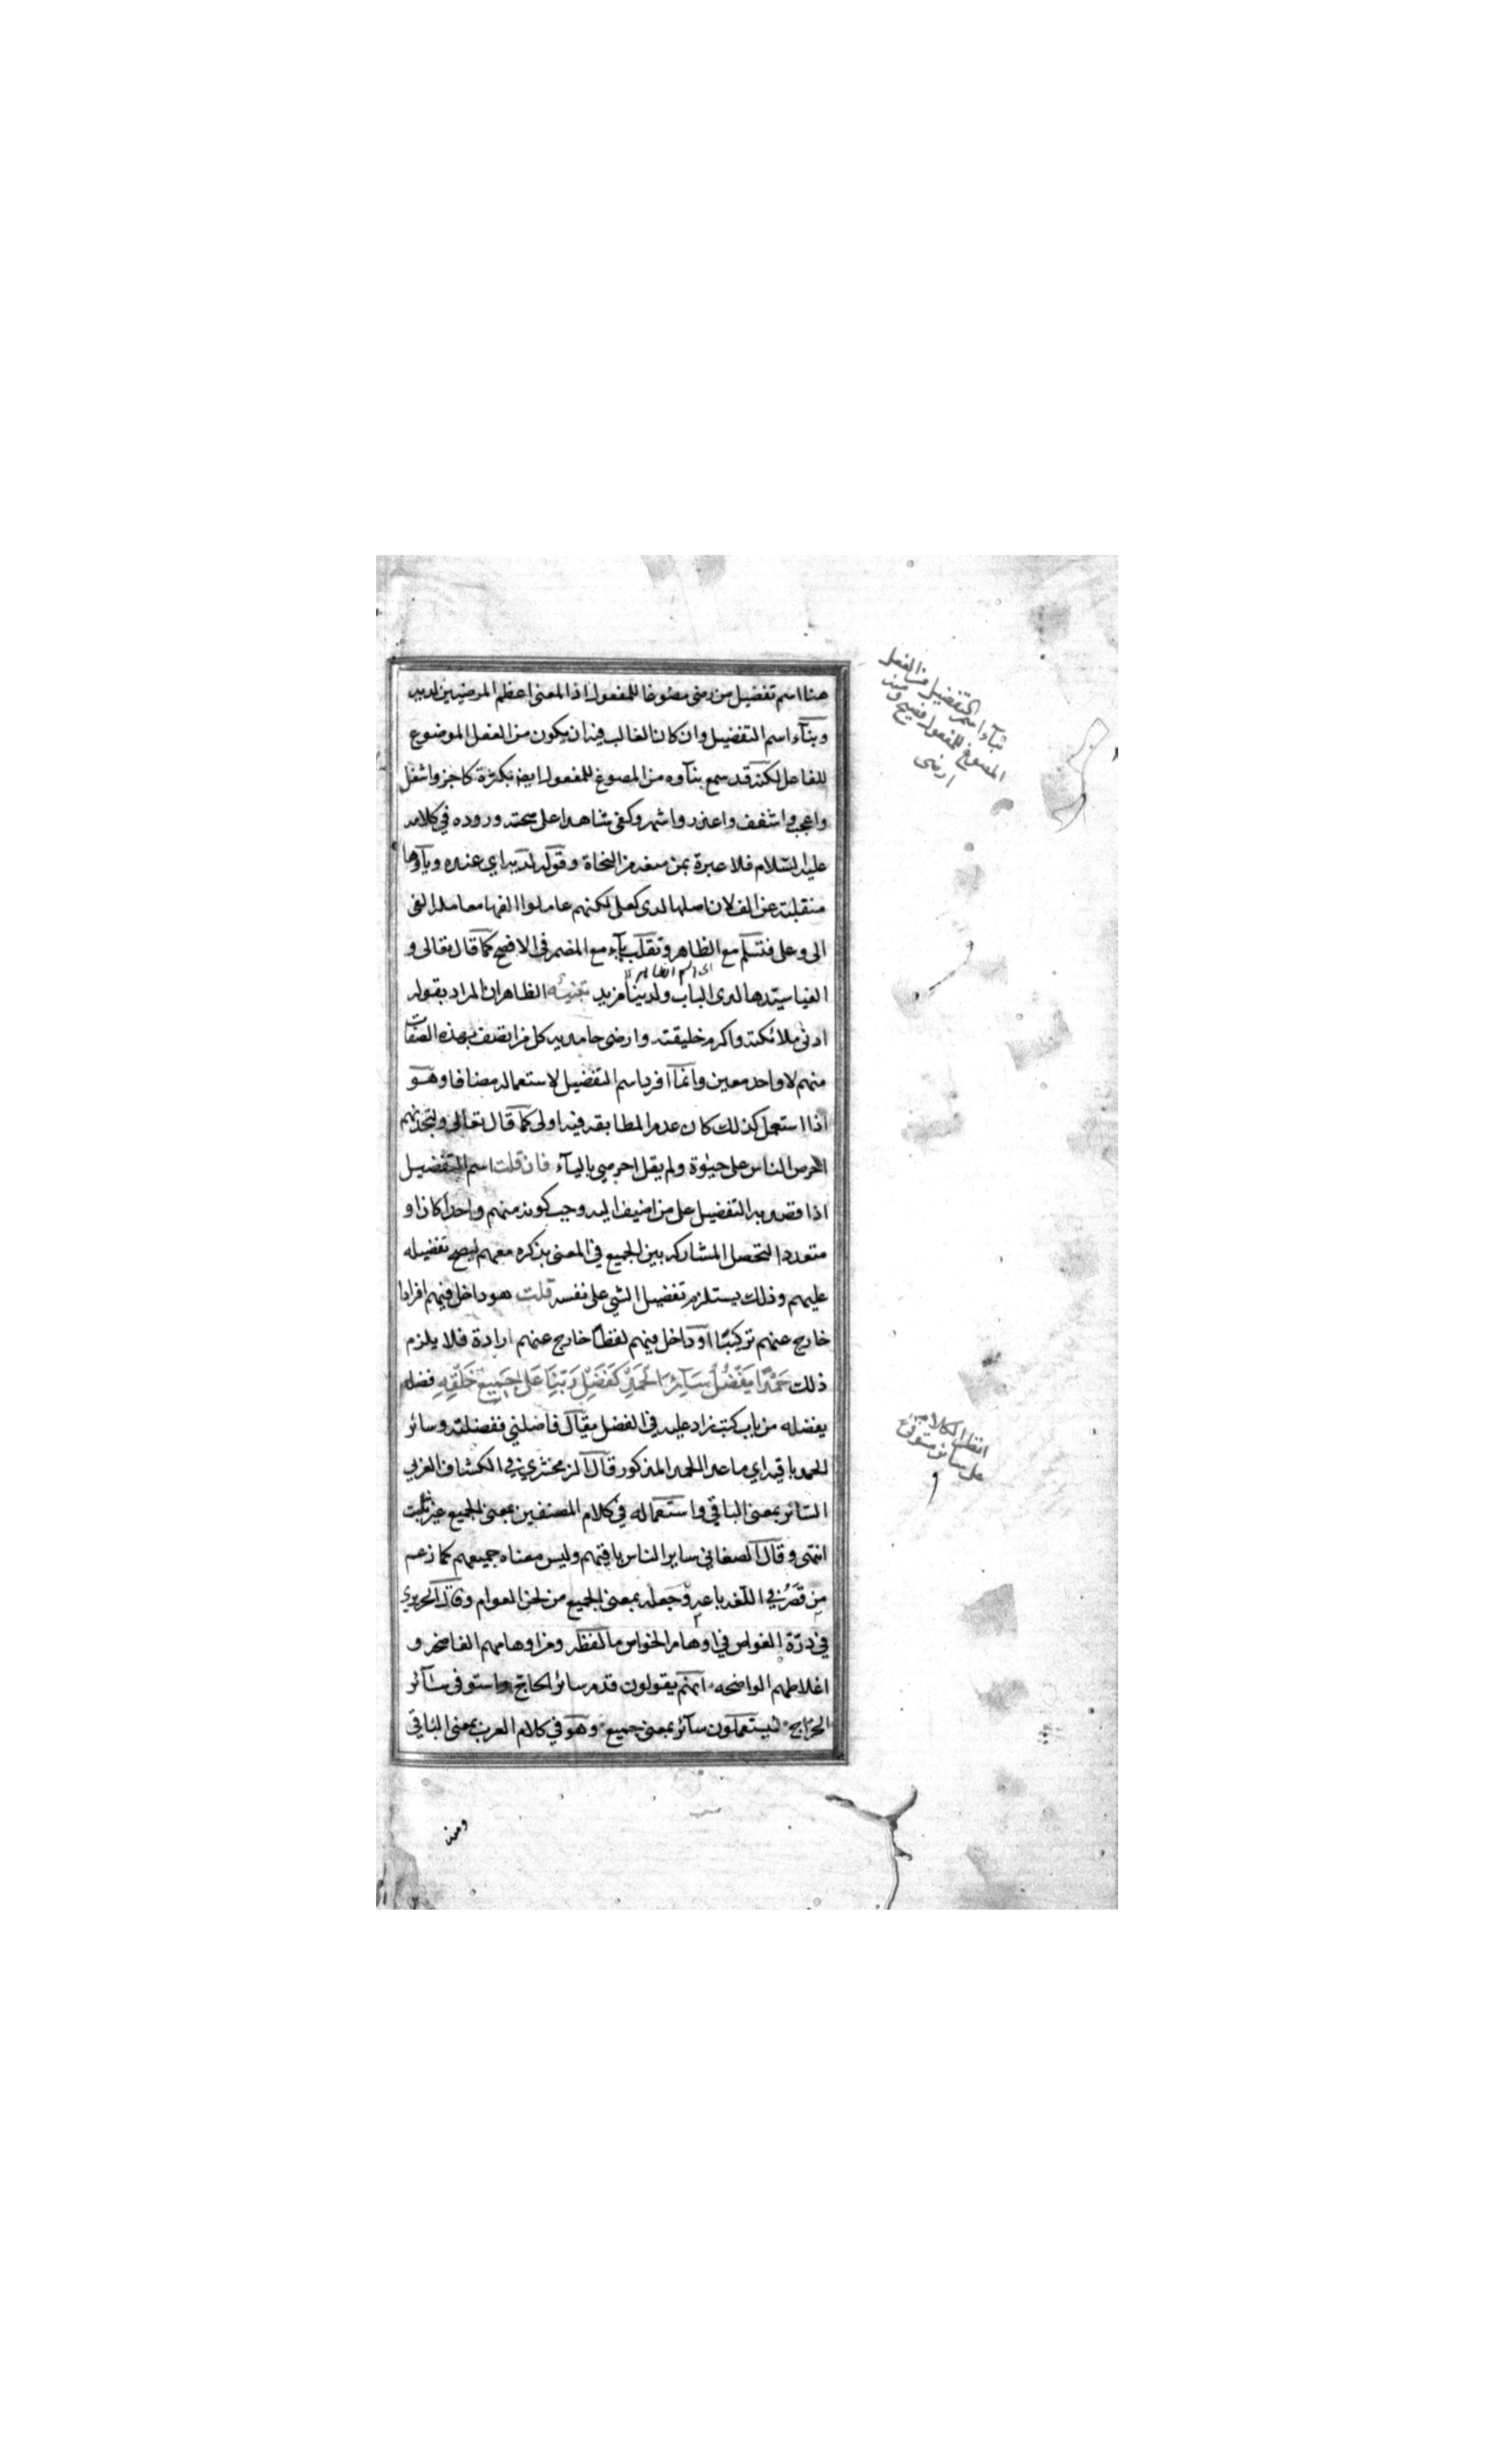 هنا اسم تفضيل من رضى مصوغا للمفعول اذ المعنى اعظم المرضيين لديه
وبنآء اسم التفضيل وان كان الغالب فيه ان يكون من الفعل الموضوع
للفاعل لكنه قد سمع بنآوه من المصوغ للمفعول ايضا بكثرة كاجز واشغل
واعجب واشغف واعذر واشهر وكفى شاهدا على صحته وروده في كلامه
عليه السلام فلا عبرة بمن منعه من النحاة وقوله لديه اي عنده ويآؤها
منقلبة عن الف لان اصلها لدى كعلى لكنهم عاملوا الفها معاملة الفى
الى وعلى فتسلم مع الظاهر وتقلب يآء مع المضمر في الافصح كما قال تعالى و
اى الى الظاهر
الفيا سيدها لدى الباب ولدينا مزيد تنبيه الظاهر ان المراد بقوله
ادنى ملائكته واكرم خليقته وارضى حامديه كل من اتصف بهذه الصفات
منهم لا واحد معين وانما افرد اسم التفضيل لاستعماله مضافا وهو
اذا استعمل كذلك كان عدم المطابقة فيه اولى كما قال تعالى ولتجدنهم
احرص الناس على حيوة ولم يقل احرصي باليآء فان قلت اسم التفضيل
اذا قصد به التفضيل على من اضيف اليه وجب كونه منهم واحدا كان او
متعددا لتحصل المشاركة بين الجميع في المعنى بذكره معهم ليصح تفضيله
عليهم وذلك يستلزم تفضيل الشي على نفسه قلت هو داخل فيهم افرادا
خارج عنهم تركيبًا او داخل فيهم لفظًا خارج عنهم ارادة فلا يلزم
ذلك حَمْدًا يَفْضُلُ سَآئِرَ الْحَمْدِ كَفَضْلِ رَبِّنَا عَلى جَمِيعِ خَلْقِهِ فضله
يفضله من باب كتب زاد عليه في الفضل يقال فاضلني ففضلته وسائر
الحمد باقيه اي ما عدا الحمد المذكور قال الزمخشري في الكشاف العربي
السائر بمعنى الباقي واستعماله في كلام المصنفين بمعنى الجميع غير ثابت
انتهى وقال الصغاني ساير الناس باقيهم وليس معناه جميعهم كما زعم
من قَصُرَ في اللغة باعه وجعله بمعنى الجميع من لحن العوام وقال الحريري
في درّة الغواص في اوهام الخواص ما لفظه ومن اوهامهم الفاضحه و
اغلاطهم الواضحه انهم يقولون قدم سائر الحاج واستوفى سآئر
الخراج فيستعملون سآئر بمعنى جميع وهو في كلام العرب بمعنى الباقي
ومنه
بنآء اسم التفضيل من الفعل
المصوغ للمفعول فصيح ومنه
ارضى
انظر الكلام
على سائر مستوفى